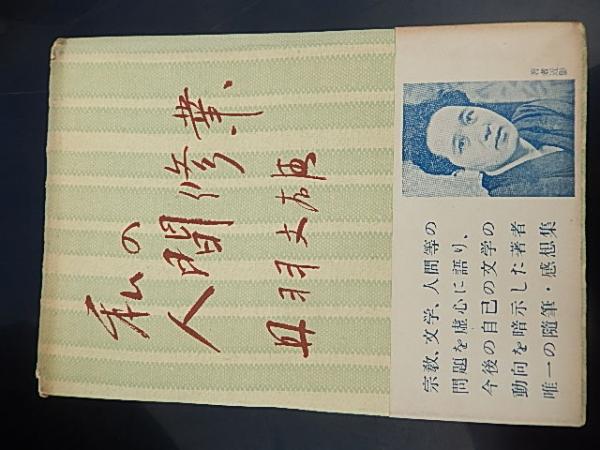 私の
人間修業
丹羽文雄
著者近影
宗教、文学、人間等の
問題を虚心に語り、
今後の自己の文学の
動向を暗示した著者
唯一の随筆・感想集